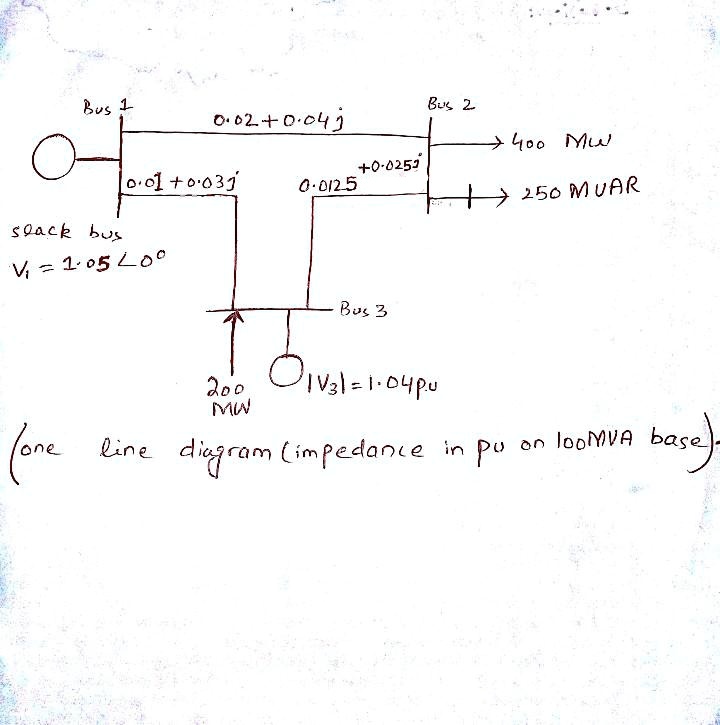 Bus 1
0.02+0.04j
Bus 2
400 MW
+0.025j
0.01+0.03j
0.0125
250 MVAR
slack bus
V₁ = 1.05∠0°
Bus 3
200
MW
|V3|=1.04p.u
(one line diagram (impedance in pu on 100MVA base).